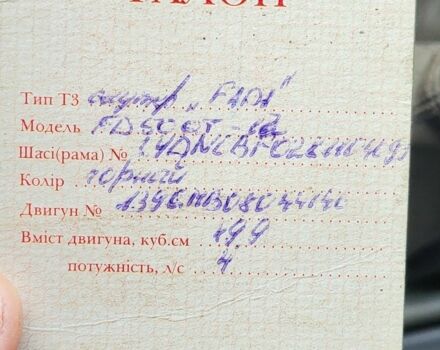 ТАЛОН
Тип ТЗ скутер „FADA"
Модель FD50QT-
Шасі(рама) №
Колір чорний
Двигун №
Вміст двигуна, куб.см 49,9
потужність, л/с 4